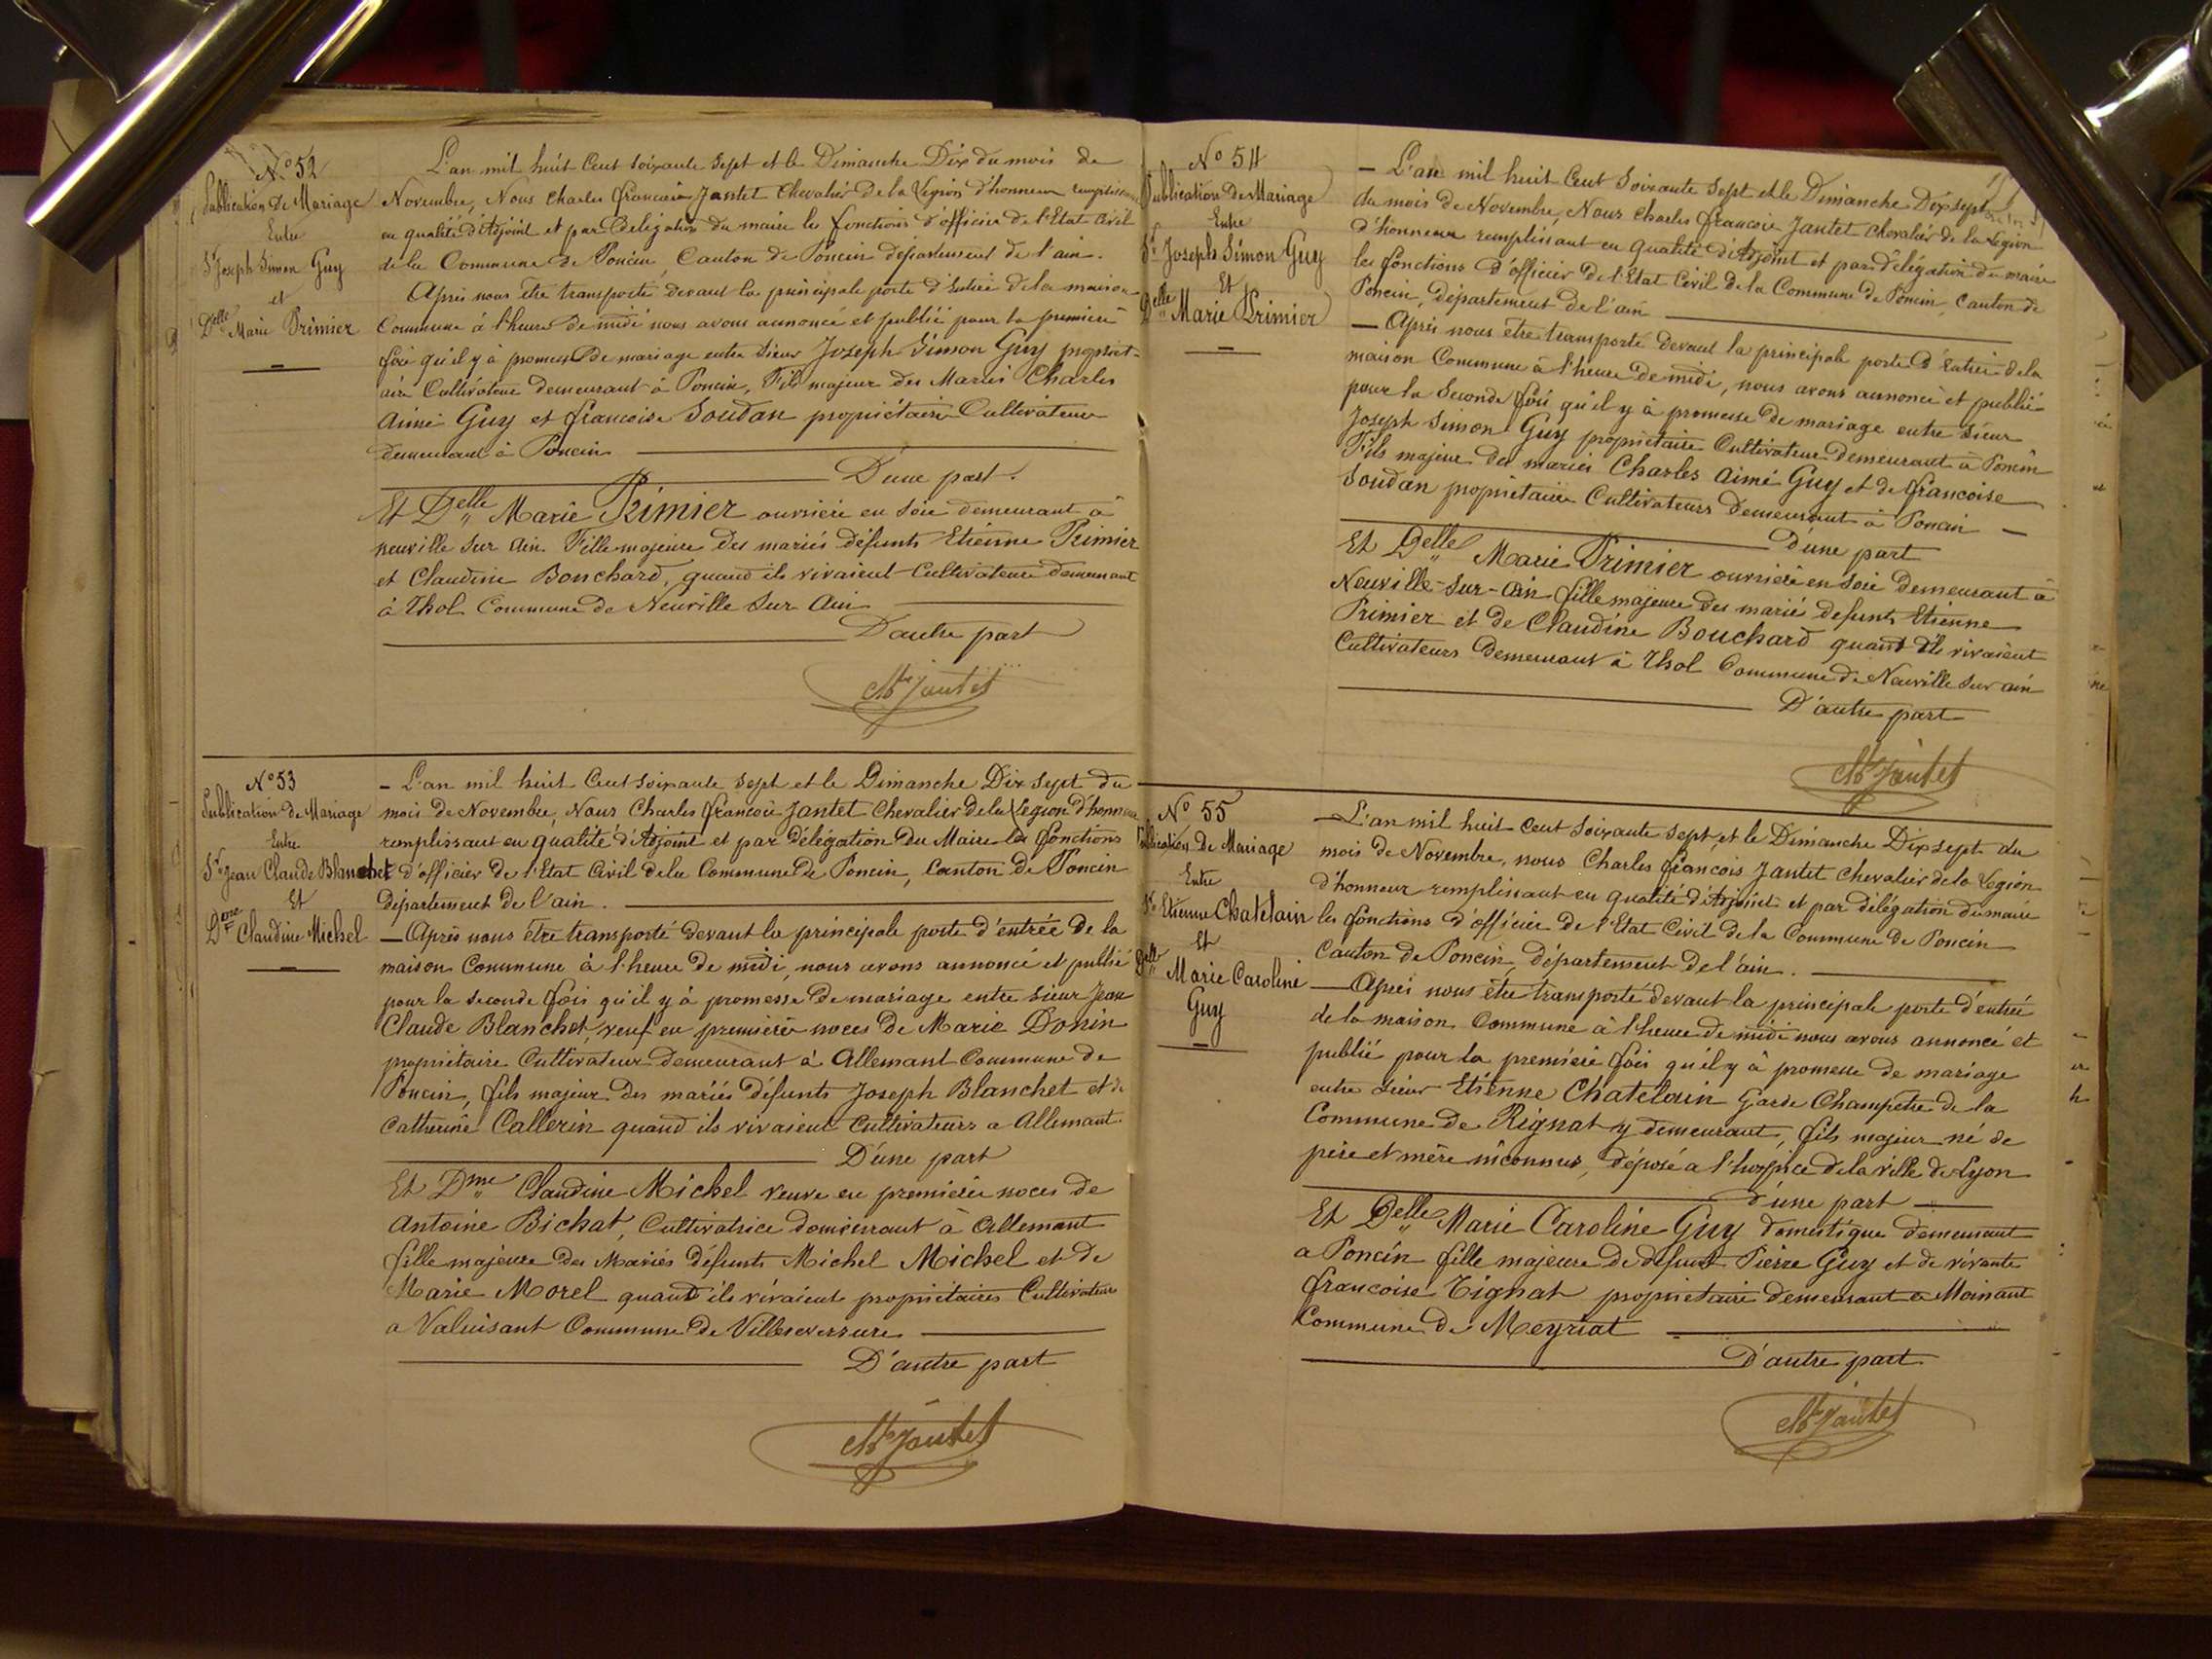 N° 52
Publication De Mariage
Entre
Sr Joseph Simon Guy
et
Delle Marie Primier
L'an mil huit Cent soixante Sept et le Dimanche Dix du mois de
Novembre, Nous Charles francois Jantet Chevalier De la Légion d'honneur remplissant
en qualité d'Adjoint et par Délégation du maire les fonctions d'officier de l'Etat Civil
de la Commune de Poncin, Canton de Poncin département de l'ain.
Après nous être transporté devant la principale porte d'entrée de la maison
Commune à l'heure de midi nous avons annoncé et publié pour la première
fois qu'il y à promesse de mariage entre sieur Joseph Simon Guy propriét-
aire Cultivateur demeurant à Poncin, Fils majeur des Mariés Charles
Aimé Guy et francoise Soudan propriétaires Cultivateurs
demeurant à Poncin
D'une part.
Et Delle Marie Primier ouvrière en soie demeurant à
neuville sur Ain. Fille majeure des mariés défunts Etienne Primier
et Claudine Bouchard, quand ils vivaient Cultivateurs demeurant
à Thol Commune de Neuville sur Ain
D'autre part
Ch Jantet
N° 53
Publication de Mariage
Entre
Sr Jean Claude Blanchet
Et
Dme Claudine Michel
– L'an mil huit Cent soixante Sept et le Dimanche Dix Sept du
mois de Novembre, Nous Charles francois Jantet Chevalier de la Légion d'honneur
remplissant en qualité d'Adjoint et par Délégation Du Maire les fonctions
d'officier de l'Etat Civil de la Commune de Poncin, Canton De Poncin
département de l'ain.
– Après nous être transporté devant la principale porte d'entrée de la
maison Commune à l'heure de midi, nous avons annoncé et publié
pour la seconde fois qu'il y à promesse de mariage entre sieur Jean
Claude Blanchet, veuf en première noces de Marie Donin
propriétaire Cultivateur demeurant à Allemant Commune de
Poncin, fils majeur des mariés défunts Joseph Blanchet et de
Catherine Callerin quand ils vivaient Cultivateurs a Allemant.
D'une part
Et Dme Claudine Michel veuve en première noces de
Antoine Bichat, Cultivatrice demeurant à Allemant
fille majeure des Mariés défunts Michel Michel et de
Marie Morel quand ils vivaient propriétaires Cultivateurs
a Valuisant Commune De Villereversure
D'autre part
Ch Jantet
N° 54
Publication De Mariage
Entre
Sr Joseph Simon Guy
Et
Delle Marie Primier
– L'an mil huit Cent Soixante Sept et le Dimanche Dix sept
du mois de Novembre, Nous Charles francois Jantet Chevalier de la Légion
d'honneur remplissant en Qualité d'Adjoint et par délégation du maire
les fonctions d'officier de l'Etat Civil de la Commune de Poncin, Canton de
Poncin, département de l'ain
– Après nous être transporté devant la principale porte d'entrée de la
maison Commune à l'heure De midi, nous avons annoncé et publié
pour la Seconde fois qu'il y à promesse de mariage entre Sieur
Joseph Simon Guy propriétaire Cultivateur Demeurant à Poncin
Fils majeur des mariés Charles Aimé Guy et de francoise
Soudan propriétaires Cultivateurs Demeurant à Poncin –
D'une part
Et Delle Marie Primier ouvrière en soie demeurant à
Neuville-Sur-Ain fille majeure des mariés défunts Etienne
Primier et de Claudine Bouchard quand ils vivaient
Cultivateurs Demeurant à Thol Commune de Neuville sur ain
D'autre part
Ch Jantet
N° 55
Publication De Mariage
Entre
Sr Etienne Chatelain
Et
Delle Marie Caroline
Guy
– L'an mil huit cent soixante sept, et le Dimanche Dix sept du
mois de Novembre, nous Charles francois Jantet Chevalier de la Légion
d'honneur remplissant en qualité d'Adjoint et par délégation du maire
les fonctions d'officier de l'Etat Civil de la Commune de Poncin
Canton de Poncin, département De l'ain.
– Après nous être transporté devant la principale porte d'entrée
de la maison Commune à l'heure de midi nous avons annoncé et
publié pour la première fois qu'il y à promesse de mariage
entre sieur Etienne Chatelain Garde Champetre de la
Commune de Rignat y demeurant, fils majeur né de
père et mère inconnus, déposé a l'hospice de la ville de Lyon
d'une part
Et Delle Marie Caroline Guy domestique demeurant
a Poncin fille majeure de défunt Pierre Guy et de vivante
francoise Tignat propriétaire demeurant a Moinant
Commune de Meyriat
D'autre part
Ch Jantet